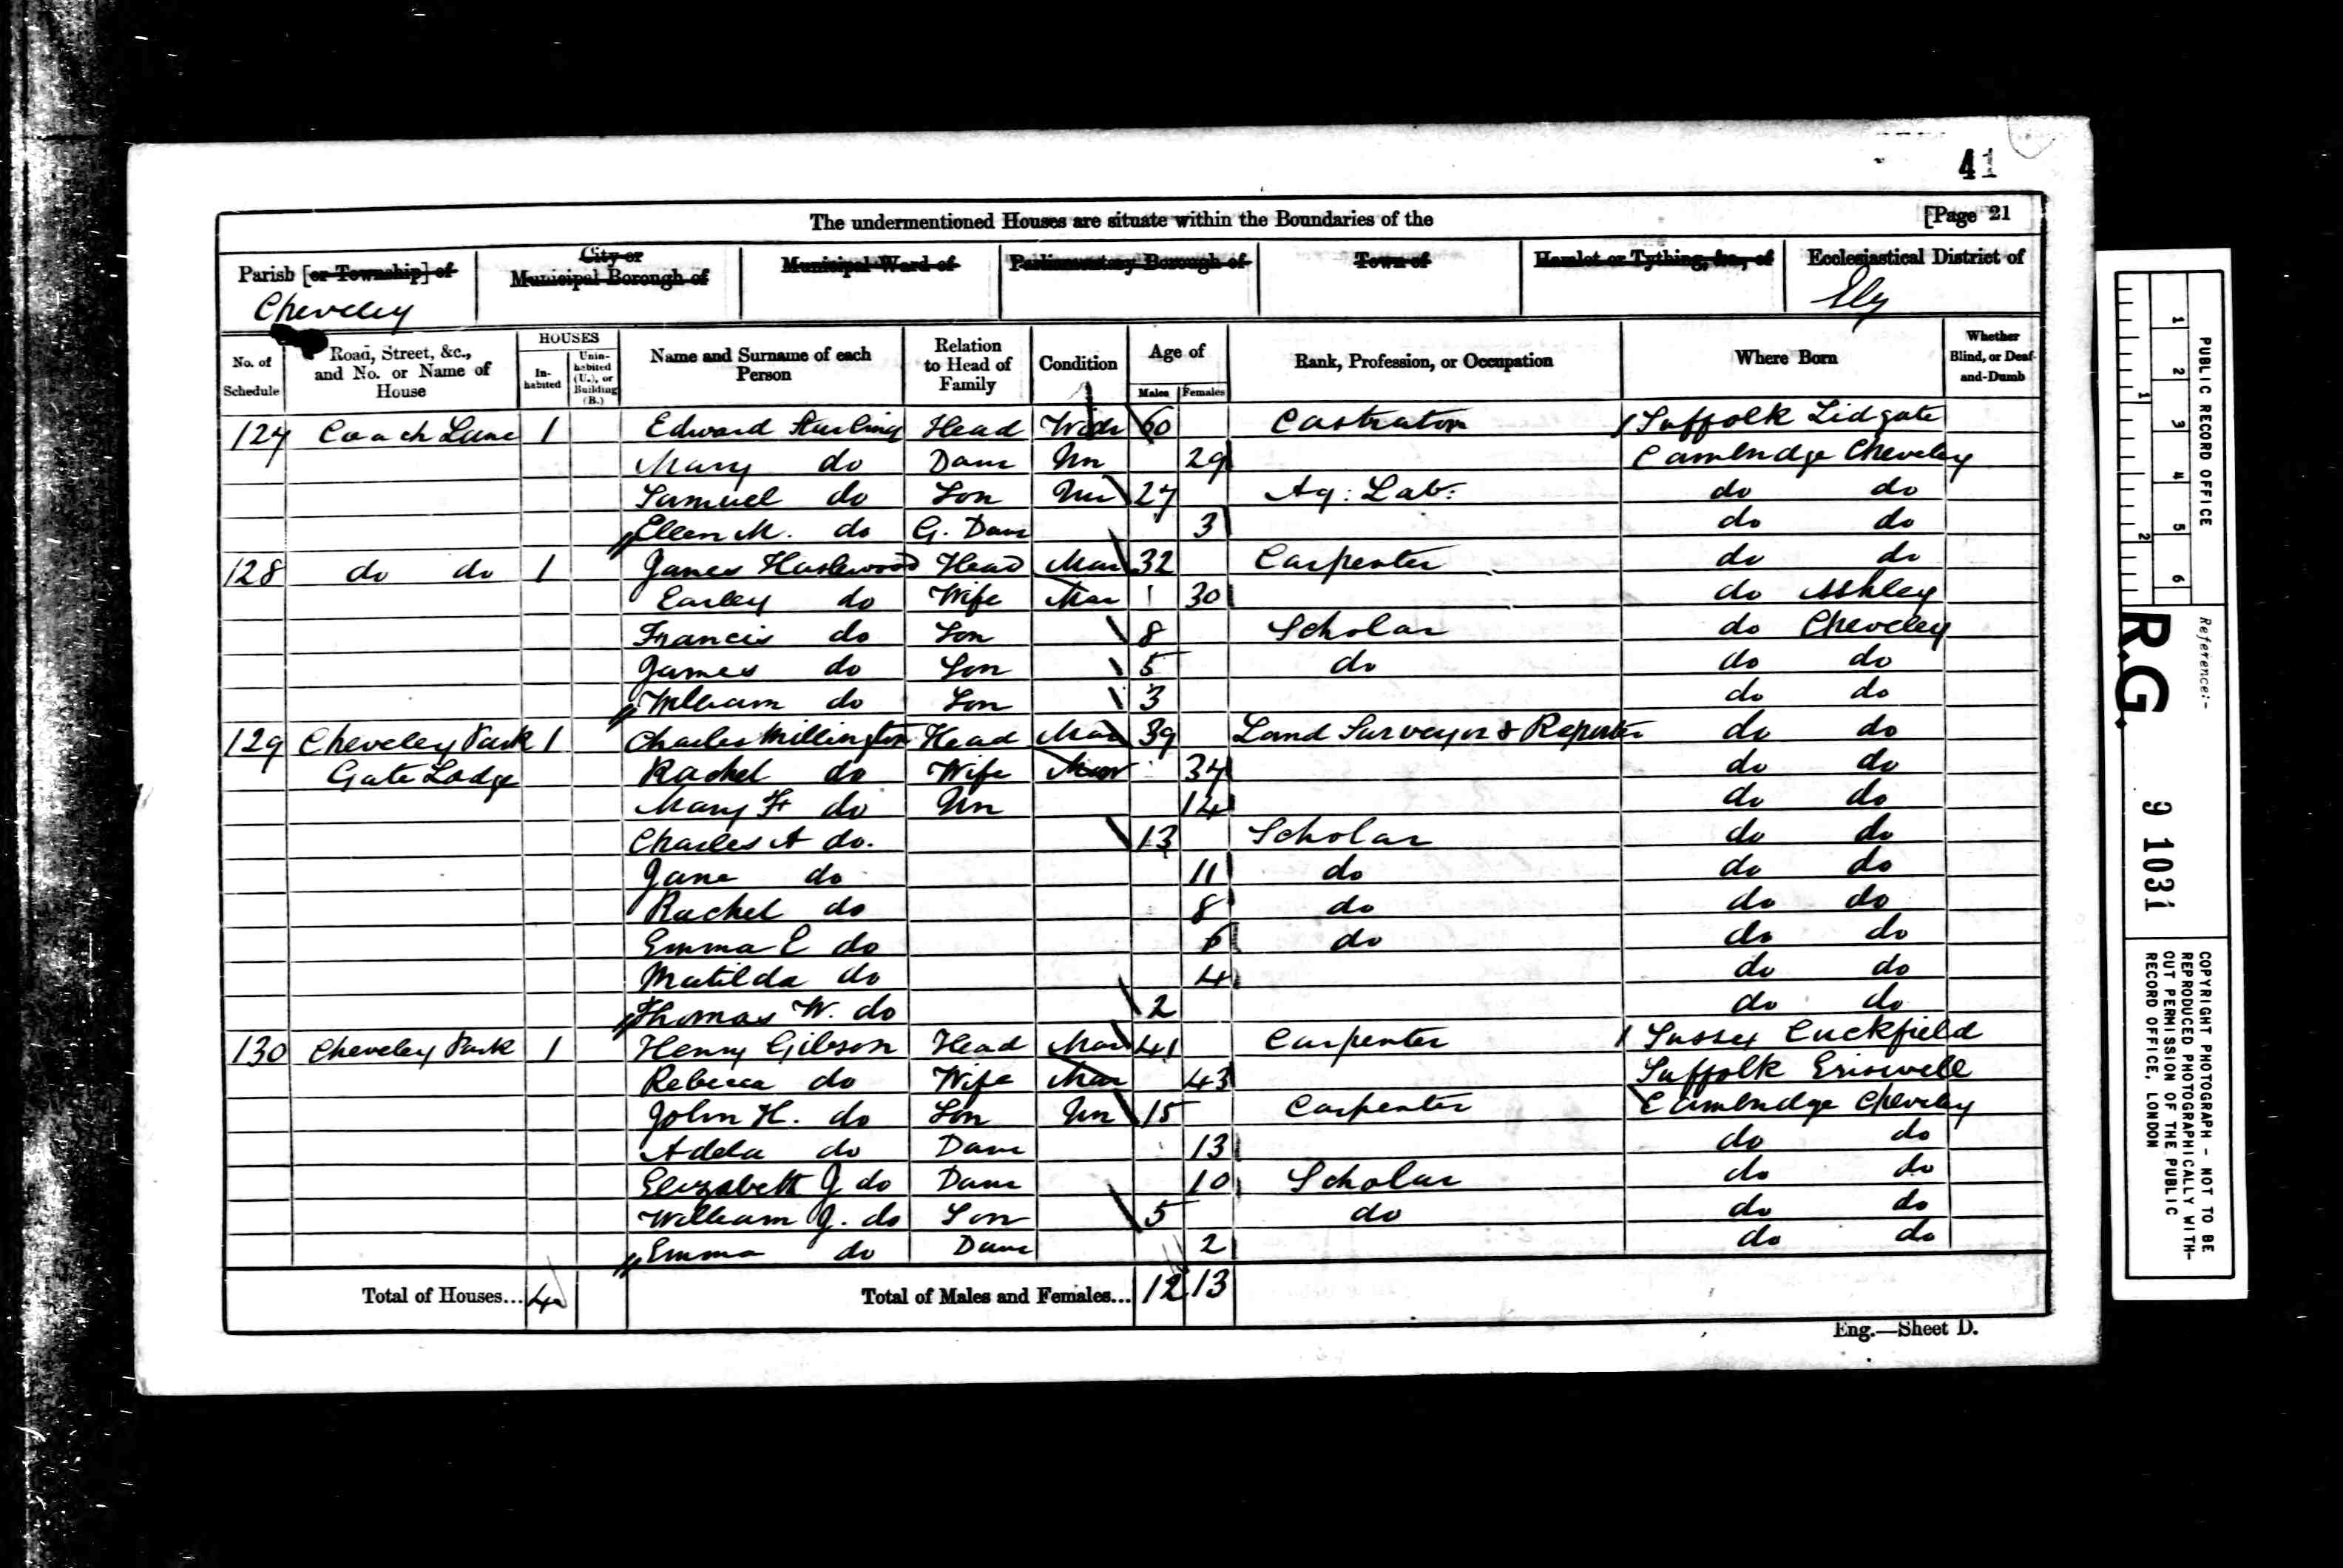 41
The undermentioned Houses are situate within the Boundaries of the [Page 21
Parish [or Township] of City or Municipal Borough of Municipal Ward of Parliamentary Borough of Town of Hamlet or Tything, &c., of Ecclesiastical District of
Cheveley Ely
No. of Schedule Road, Street, &c., and No. or Name of House HOUSES In-habited Unin-habited (U.), or Building (B.) Name and Surname of each Person Relation to Head of Family Condition Age of Males Females Rank, Profession, or Occupation Where Born Whether Blind, or Deaf-and-Dumb
127 Coach Lane 1 Edward Starling Head Widr 60 Castrator Suffolk Lidgate
Mary do Daur Un 29 Cambridge Cheveley
Samuel do Son Un 27 Ag: Lab: do do
Ellen M. do G. Daur 3 do do
128 do do 1 James Haslewood Head Mar 32 Carpenter do do
Earley do Wife Mar 30 do Ashley
Francis do Son 8 Scholar do Cheveley
James do Son 5 do do do
William do Son 3 do do
129 Cheveley Park 1 Charles Millington Head Mar 39 Land Surveyor & Reporter do do
Gate Lodge Rachel do Wife Mar 37 do do
Mary F do Un 14 do do
Charles A do. 13 Scholar do do
Jane do 11 do do do
Rachel do 8 do do do
Emma E do 6 do do do
Matilda do 4 do do
Thomas W. do 2 do do
130 Cheveley Park 1 Henry Gibson Head Mar 41 Carpenter Sussex Cuckfield
Rebecca do Wife Mar 43 Suffolk Eriswell
John H. do Son Un 15 Carpenter Cambridge Cheveley
Adela do Daur 13 do do
Elizabeth J do Daur 10 Scholar do do
William J. do Son 5 do do do
Emma do Daur 2 do do
Total of Houses... 4 Total of Males and Females... 12 13
Eng.—Sheet D.
1 2 3 4 5 6
1 2
PUBLIC RECORD OFFICE
Reference:-
R.G. 9 1031
COPYRIGHT PHOTOGRAPH - NOT TO BE
REPRODUCED PHOTOGRAPHICALLY WITH-
OUT PERMISSION OF THE PUBLIC
RECORD OFFICE, LONDON